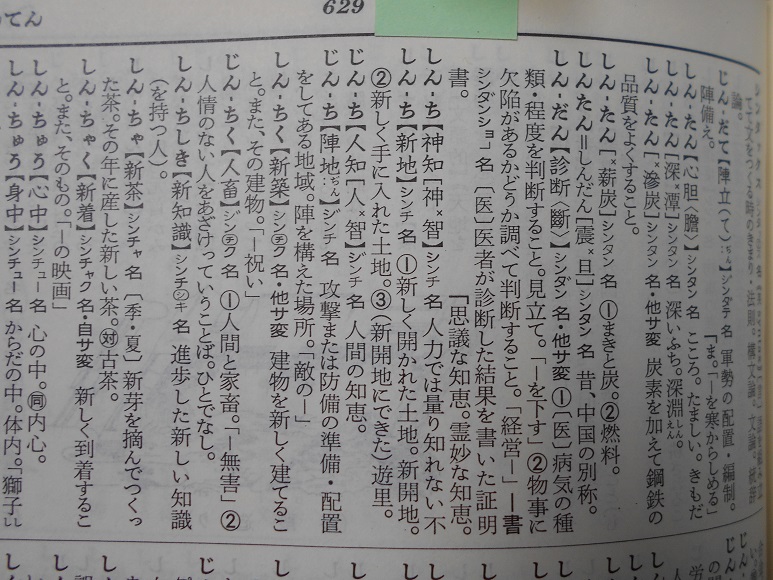 629
のてん
てて文をつくる時のきまり・法則。構文論。文論。統辞
論。
じん‐だて【陣立(て)】ジンダテ 名 軍勢の配置・編制。
陣備え。
しん‐たん【心胆〈膽〉】シンタン 名 こころ。たましい。きもだ
「ま。「―を寒からしめる」
しん‐たん【深×潭】シンタン 名 深いふち。深淵しんえん。
しん‐たん【×滲炭】シンタン 名・他サ変 炭素を加えて鋼鉄の
品質をよくすること。
しん‐たん【×薪炭】シンタン 名 ①まきと炭。②燃料。
しんたん=しんだん【震×旦】シンタン 名 昔、中国の別称。
しん‐だん【診断〈斷〉】シンダン 名・他サ変 ①〔医〕病気の種
類・程度を判断すること。見立て。「―を下す」②物事に
欠陥があるかどうか調べて判断すること。「経営―」―書
シンダンショ 名 〔医〕医者が診断した結果を書いた証明
書。
「思議な知恵。霊妙な知恵。
しん‐ち【神知】【神×智】シンチ 名 人力では量り知れない不
しん‐ち【新地】シンチ 名 ①新しく開かれた土地。新開地。
②新しく手に入れた土地。③(新開地にできた)遊里。
じん‐ち【人知】【人×智】ジンチ 名 人間の知恵。
じん‐ち【陣地】ジンチ 名 攻撃または防備の準備・配置
をしてある地域。陣を構えた場所。「敵の―」
しん‐ちく【新築】シンチク 名・他サ変 建物を新しく建てるこ
と。また、その建物。「―祝い」
じん‐ちく【人畜】ジンチク 名 ①人間と家畜。「―無害」②
人情のない人をあざけっていうことば。ひとでなし。
しん‐ちしき【新知識】シンチシキ 名 進歩した新しい知識
(を持つ人)。
しん‐ちゃ【新茶】シンチャ 名 〔季・夏〕新芽を摘んでつくっ
た茶。その年に産した新しい茶。対古茶。
しん‐ちゃく【新着】シンチャク 名・自サ変 新しく到着するこ
と。また、そのもの。「―の映画」
しん‐ちゅう【心中】シンチュー 名 心の中。同内心。
しん‐ちゅう【身中】シンチュー 名 からだの中。体内。「獅子